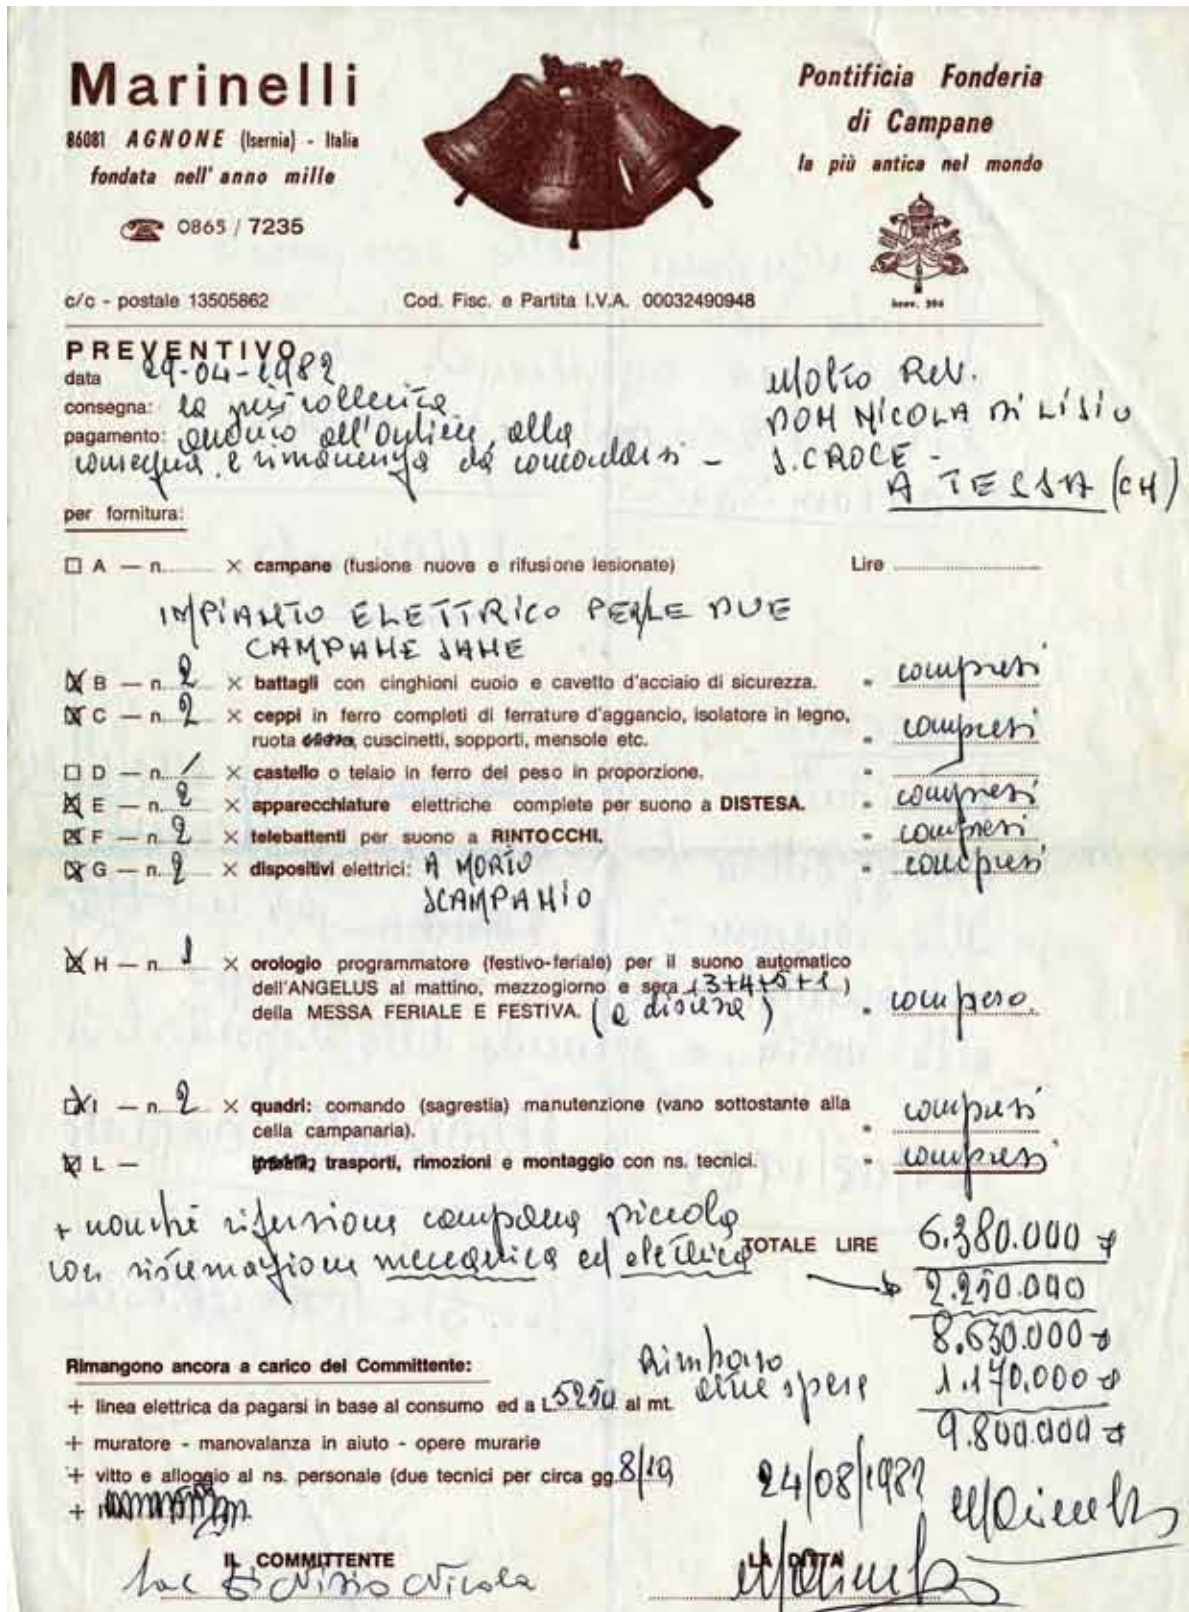 Marinelli
86081 AGNONE (Isernia) - Italia
fondata nell' anno mille
0865 / 7235
Pontificia Fonderia
di Campane
la più antica nel mondo
brev. 304
c/c - postale 13505862 Cod. Fisc. e Partita I.V.A. 00032490948
PREVENTIVO
data 29-04-1982
consegna: la più sollecita
pagamento: anticipo all'ordine, alla
consegna e rimanenza da concordarsi -
Molto Rev.
DON NICOLA DI LISIO
S. CROCE -
ATESSA (CH)
per fornitura:
A — n. × campane (fusione nuove o rifusione lesionate) Lire
IMPIANTO ELETTRICO PER LE DUE
CAMPANE SANE
B — n. 2 × battagli con cinghioni cuoio e cavetto d'acciaio di sicurezza. " compresi
C — n. 2 × ceppi in ferro completi di ferrature d'aggancio, isolatore in legno,
ruota cuscinetti, sopporti, mensole etc. " compresi
D — n. / × castello o telaio in ferro del peso in proporzione. "
E — n. 2 × apparecchiature elettriche complete per suono a DISTESA. " compresi
F — n. 2 × telebattenti per suono a RINTOCCHI. " compresi
G — n. 2 × dispositivi elettrici: A MORTO " compresi
SCAMPANIO
H — n. 1 × orologio programmatore (festivo-feriale) per il suono automatico
dell'ANGELUS al mattino, mezzogiorno e sera (3+4+5+1)
della MESSA FERIALE E FESTIVA. (a distesa) " compreso
I — n. 2 × quadri: comando (sagrestia) manutenzione (vano sottostante alla
cella campanaria). " compresi
L — trasporti, rimozioni e montaggio con ns. tecnici. " compresi
+ nonché rifusione campana piccola
con sistemazione meccanica ed elettrica
TOTALE LIRE 6.380.000
2.250.000
8.630.000
Rimborso
altre spese
1.170.000
9.800.000
Rimangono ancora a carico del Committente:
+ linea elettrica da pagarsi in base al consumo ed a L. 5250 al mt.
+ muratore - manovalanza in aiuto - opere murarie
+ vitto e alloggio al ns. personale (due tecnici per circa gg. 8/10)
+
24/08/1982
Marinelli
IL COMMITTENTE LA DITTA
Nicola
Marinelli